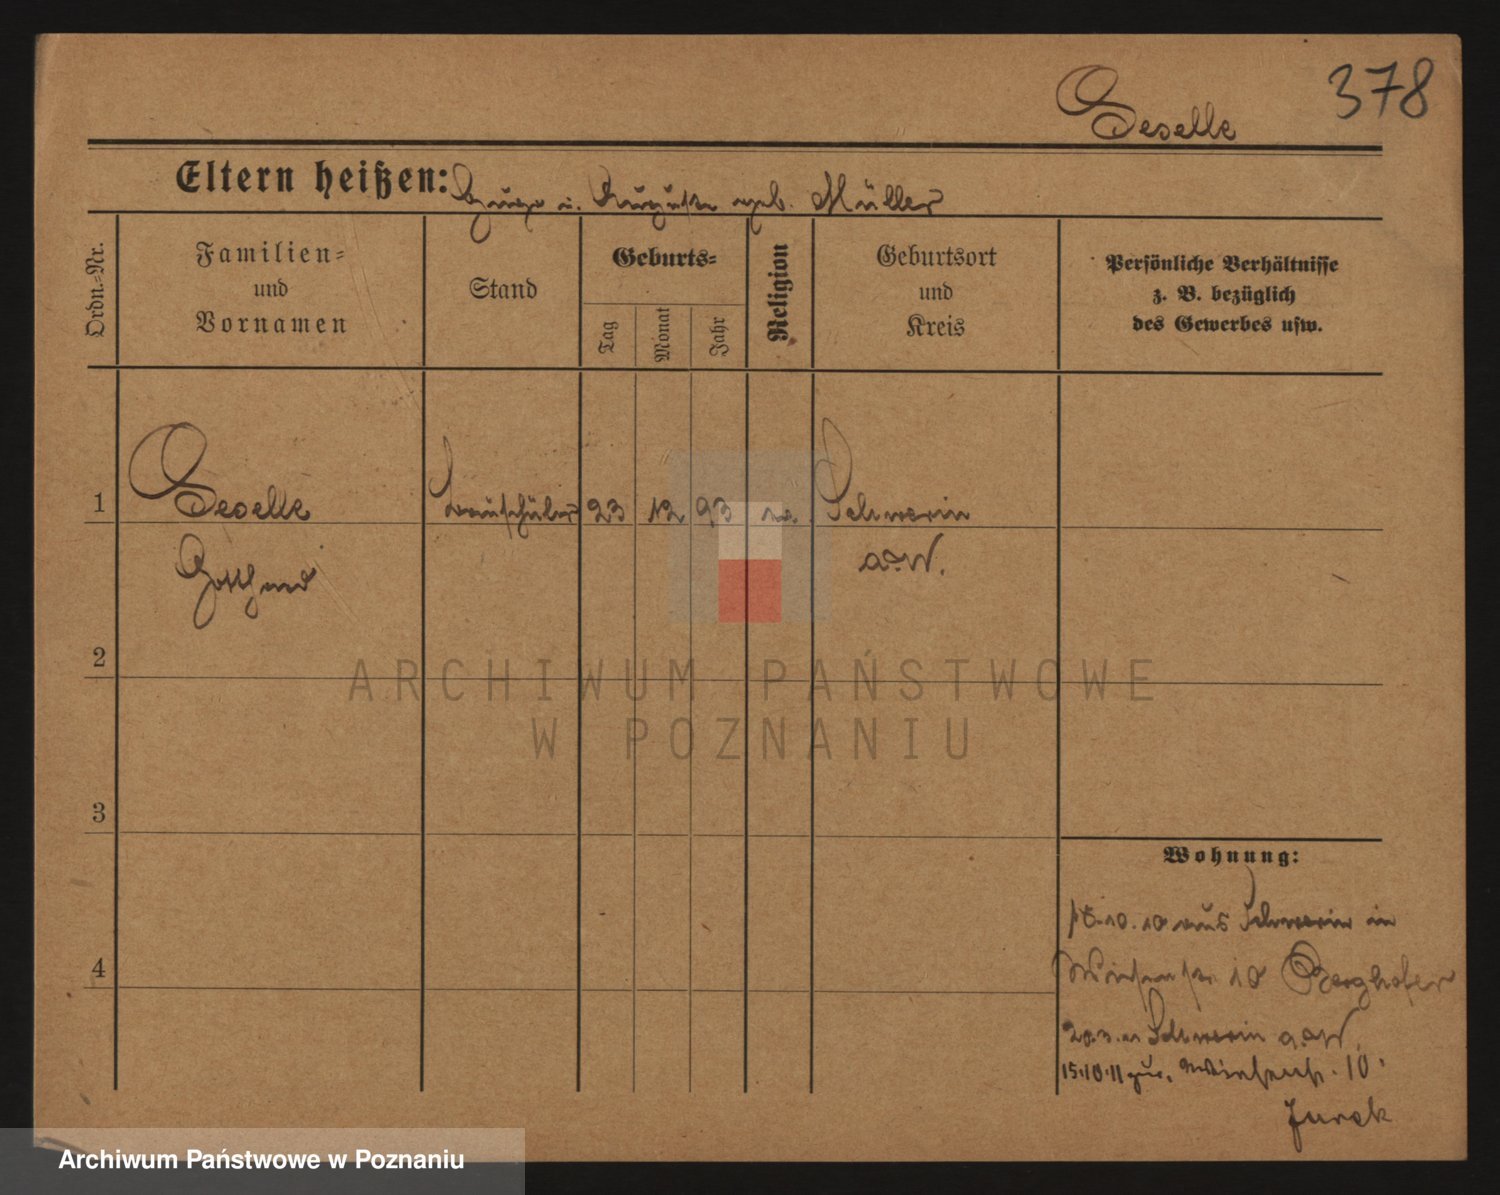 378
Geselle
Eltern heißen: Hugo u. Auguste geb. Müller
Ordn.-Nr.
Familien-
und
Vornamen
Stand
Geburts-
Tag
Monat
Jahr
Religion
Geburtsort
und
Kreis
Persönliche Verhältnisse
z. B. bezüglich
des Gewerbes usw.
1
Geselle
23 12 93 ev. Schwerin
Gotthard
a. W.
2
ARCHIWUM PAŃSTWOWE
W POZNANIU
3
Wohnung:
10. 10 aus Schwerin in
4
10 Berghofer
Schwerin a. W.
15.10.11 10
Jurek
Archiwum Państwowe w Poznaniu